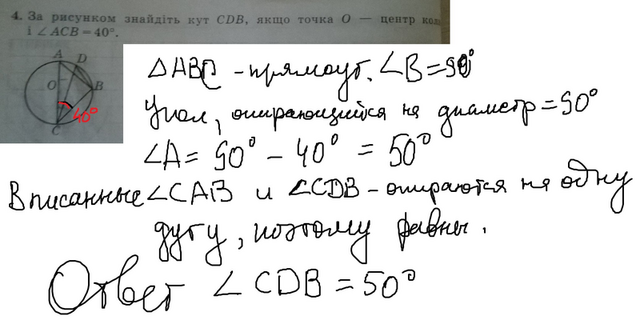 4. За рисунком знайдіть кут CDB, якщо точка O — центр кол
і ∠ACB = 40°.
A
D
O
B
40°
C
△ABC - прямоуг. ∠B = 90°
Угол, опирающийся на диаметр = 90°
∠A = 90° - 40° = 50°
Вписанные ∠CAB и ∠CDB - опираются на одну
дугу, поэтому равны.
Ответ ∠CDB = 50°